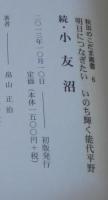 秋田めこだま叢書 6
明日につなぎたい いのち輝く能代平野
続・小友沼
二〇一三年一〇月一〇日 初版発行
定価(本体一五〇〇円+税)
著者 畠山正治